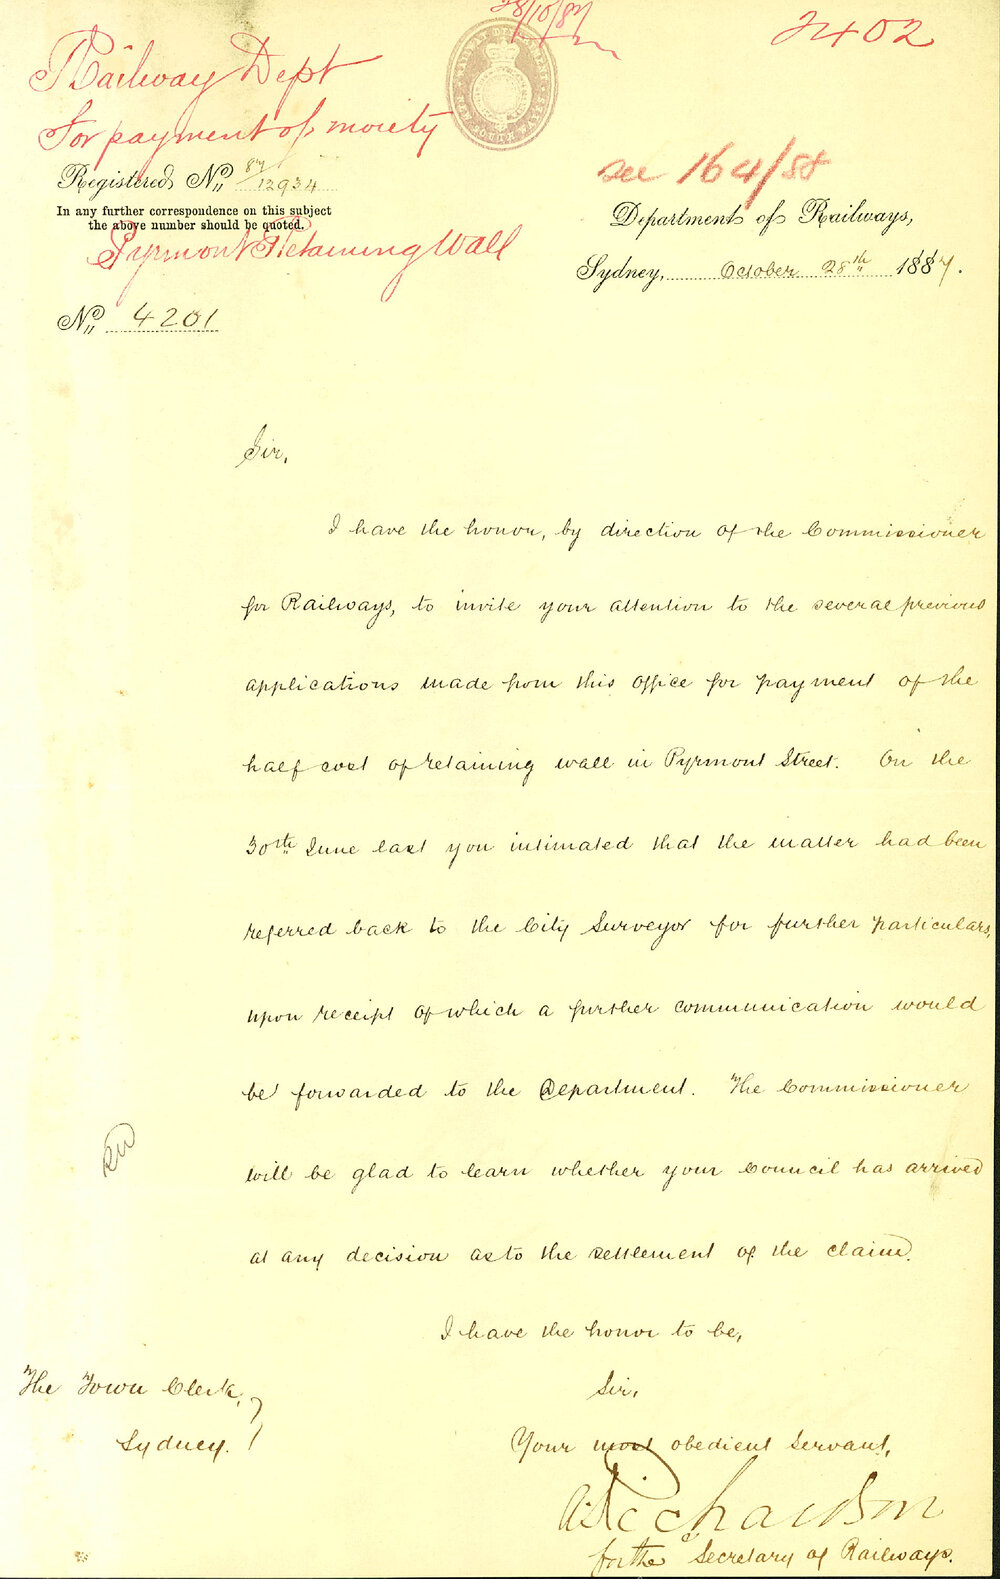 28/10/87
2402
Railway Dept
For payment of moiety
see 164/88
Registered No. 87/12934
In any further correspondence on this subject
the above number should be quoted.
Pyrmont Retaining Wall
Department of Railways,
Sydney, October 28th 1887.
No. 4201
Sir,
I have the honor, by direction of the Commissioner
for Railways, to invite your attention to the several previous
applications made from this office for payment of the
half cost of retaining wall in Pyrmont Street. On the
30th June last you intimated that the matter had been
referred back to the City Surveyor for further particulars,
upon receipt of which a further communication would
be forwarded to the Department. The Commissioner
will be glad to learn whether your Council has arrived
at any decision as to the settlement of the claim.
I have the honor to be,
Sir,
Your most obedient Servant,
Richardson
for the Secretary of Railways.
The Town Clerk,
Sydney.